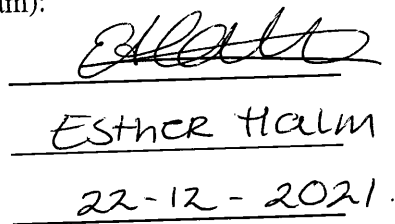 um):
Esther Halm
22-12-2021.